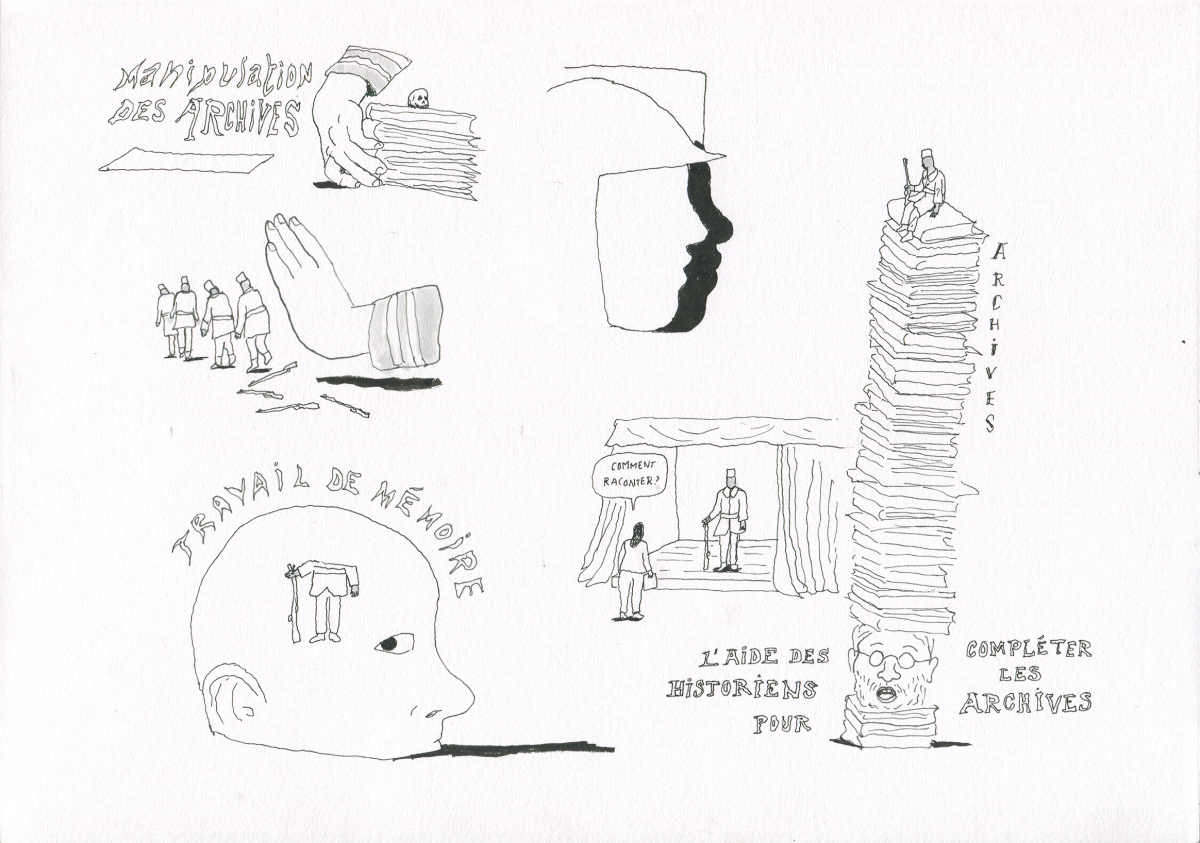 Manipulation
DES ARCHIVES
ARCHIVES
TRAVAIL DE MÉMOIRE
COMMENT
RACONTER?
L'AIDE DES
HISTORIENS
POUR
COMPLÉTER
LES
ARCHIVES